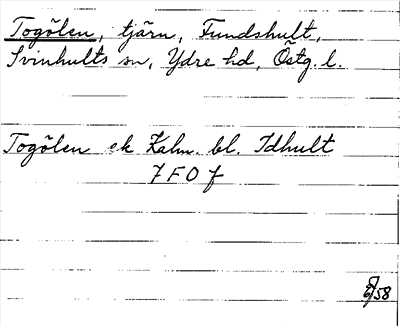 Togölen, tjärn, Fundshult,
Svinhults sn, Ydre hd, Östg. l.
Togölen ek Kalm. bl. Idhult
7 F 0 f
/58